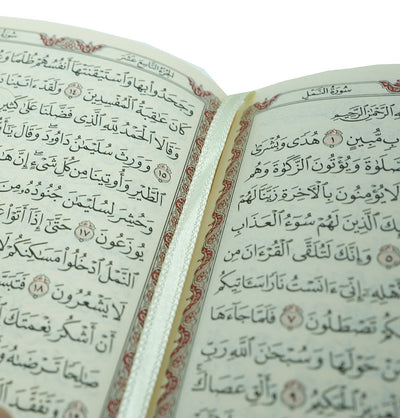 سُورَةُ النَّمْلِ
الرَّحْمَٰنِ الرَّحِيمِ
مُّبِينٍ ١ هُدًى وَبُشْرَىٰ
وَيُؤْتُونَ ٱلزَّكَوٰةَ وَهُم
لَا يُؤْمِنُونَ بِٱلْأَخِرَةِ زَيَّنَّا لَهُمْ
ٱلَّذِينَ لَهُمْ سُوٓءُ ٱلْعَذَابِ
٥ وَإِنَّكَ لَتُلَقَّى ٱلْقُرْءَانَ مِن
إِنِّيٓ ءَانَسْتُ نَارًا سَـَٔاتِيكُم
تَصْطَلُونَ ٧ فَلَمَّا جَآءَهَا
حَوْلَهَا وَسُبْحَٰنَ ٱللَّهِ رَبِّ
ٱلْحَكِيمُ ٩ وَأَلْقِ عَصَاكَ
الجُزْءُ التَّاسِعَ عَشَرَ
وَجَحَدُوا۟ بِهَا وَٱسْتَيْقَنَتْهَآ أَنفُسُهُمْ ظُلْمًا
كَانَ عَٰقِبَةُ ٱلْمُفْسِدِينَ ١٤ وَلَقَدْ ءَاتَيْنَا
وَقَالَا ٱلْحَمْدُ لِلَّهِ ٱلَّذِى فَضَّلَنَا عَلَىٰ كَثِيرٍ
١٥ وَوَرِثَ سُلَيْمَٰنُ دَاوُۥدَ وَقَالَ
ٱلطَّيْرِ وَأُوتِينَا مِن كُلِّ شَىْءٍ إِنَّ
وَحُشِرَ لِسُلَيْمَٰنَ جُنُودُهُۥ مِنَ
يُوزَعُونَ ١٧ حَتَّىٰٓ إِذَآ أَتَوْا۟
ٱلنَّمْلُ ٱدْخُلُوا۟ مَسَٰكِنَكُمْ
لَا يَشْعُرُونَ ١٨ فَتَبَسَّمَ
أَنْ أَشْكُرَ نِعْمَتَكَ
صَٰلِحًا تَرْضَىٰهُ
١٩ وَتَفَقَّدَ